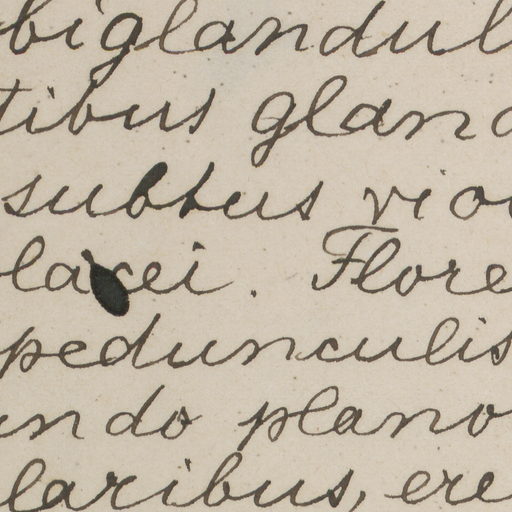 biglandul
tibus gland
subtus vio
lacei. Flore
pedunculis
ndo plano
laribus, ere